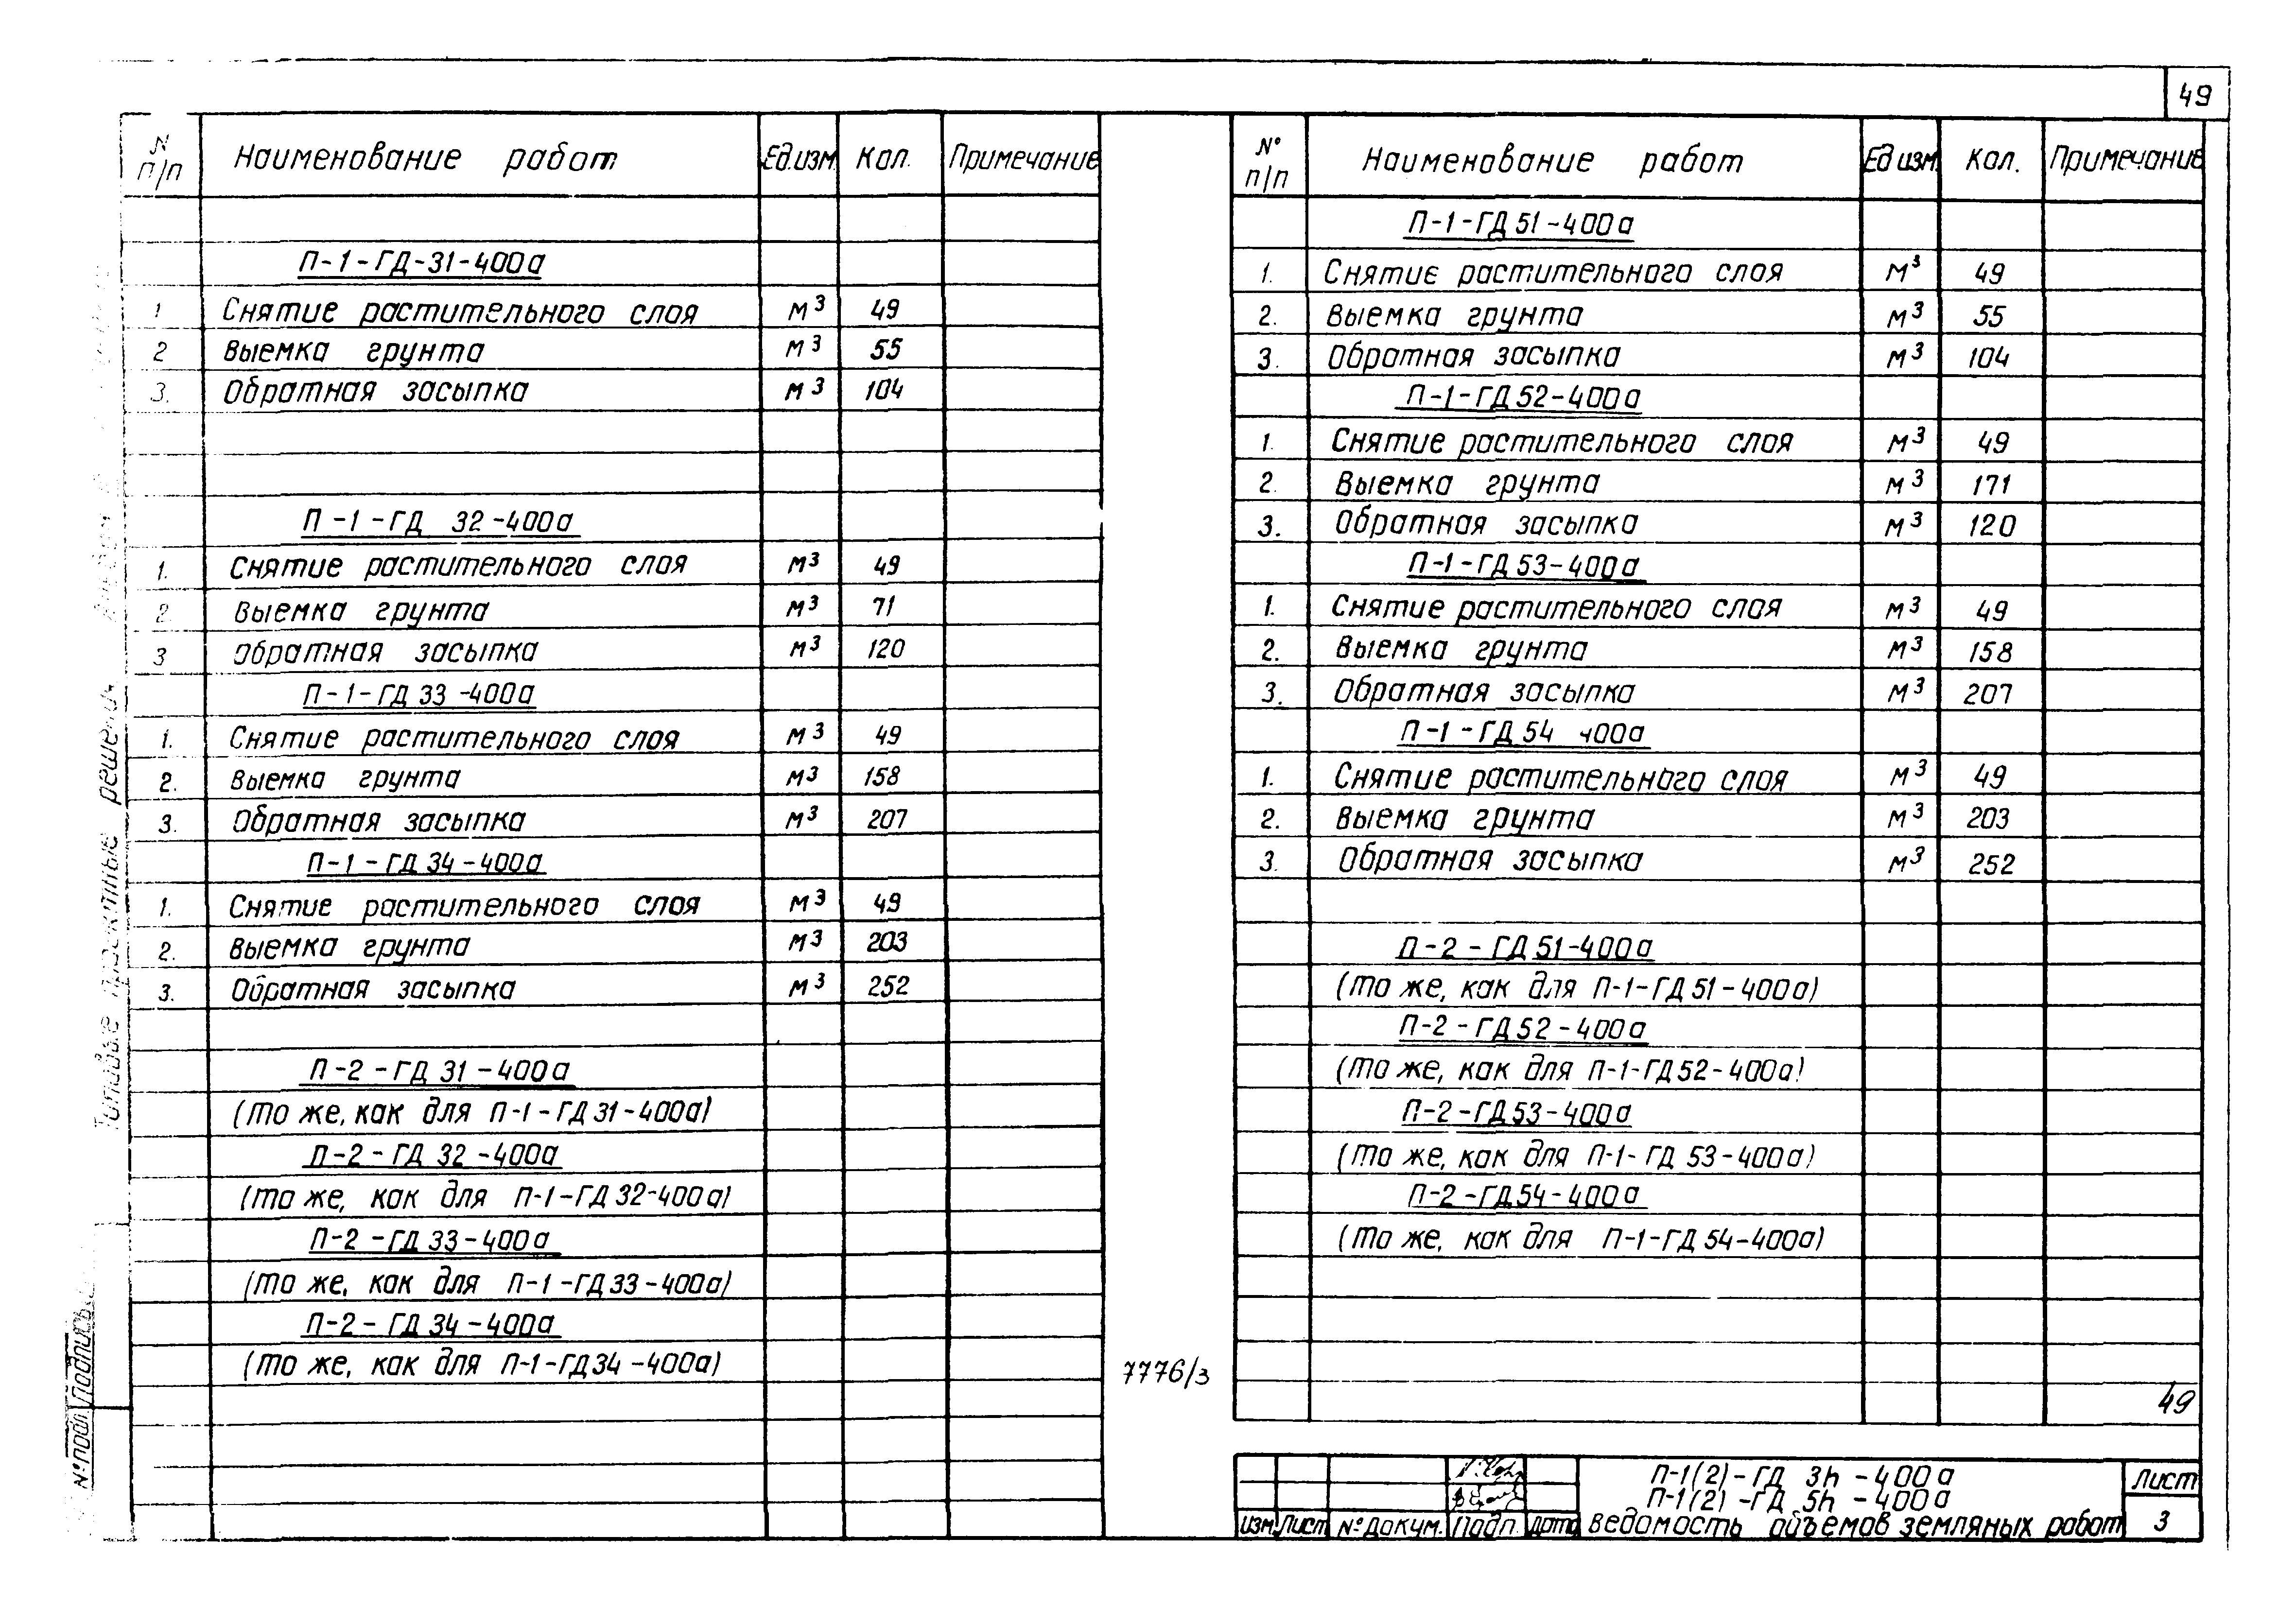 49
N п/п Наименование работ Ед.изм. Кол. Примечание
П-1-ГД-31-400а
1 Снятие растительного слоя м³ 49
2 Выемка грунта м³ 55
3. Обратная засыпка м³ 104
П-1-ГД 32-400а
1. Снятие растительного слоя м³ 49
2. Выемка грунта м³ 71
3 Обратная засыпка м³ 120
П-1-ГД 33-400а
1. Снятие растительного слоя м³ 49
2. Выемка грунта м³ 158
3. Обратная засыпка м³ 207
П-1-ГД 34-400а
1. Снятие растительного слоя м³ 49
2. Выемка грунта м³ 203
3. Обратная засыпка м³ 252
П-2-ГД 31-400а
(то же, как для П-1-ГД 31-400а)
П-2-ГД 32-400а
(то же, как для П-1-ГД 32-400а)
П-2-ГД 33-400а
(то же, как для П-1-ГД 33-400а)
П-2-ГД 34-400а
(то же, как для П-1-ГД 34-400а)
7776/3
№ п/п Наименование работ Ед изм. Кол. Примечание
П-1-ГД 51-400а
1. Снятие растительного слоя м³ 49
2. Выемка грунта м³ 55
3. Обратная засыпка м³ 104
П-1-ГД 52-400а
1. Снятие растительного слоя м³ 49
2. Выемка грунта м³ 171
3. Обратная засыпка м³ 120
П-1-ГД 53-400а
1. Снятие растительного слоя м³ 49
2. Выемка грунта м³ 158
3. Обратная засыпка м³ 207
П-1-ГД 54 400а
1. Снятие растительного слоя м³ 49
2. Выемка грунта м³ 203
3. Обратная засыпка м³ 252
П-2-ГД 51-400а
(то же, как для П-1-ГД 51-400а)
П-2-ГД 52-400а
(то же, как для П-1-ГД 52-400а)
П-2-ГД 53-400а
(то же, как для П-1-ГД 53-400а)
П-2-ГД 54-400а
(то же, как для П-1-ГД 54-400а)
49
П-1(2)-ГД 3h-400а
П-1(2)-ГД 5h-400а
Ведомость объемов земляных работ
Лист
3
Изм. Лист № докум. Подп. Дата
Типовые проектные решения
№ подл. Подпись